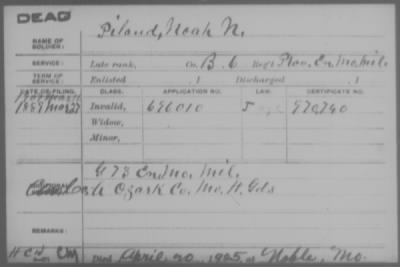 DEAD
NAME OF SOLDIER: Piland, Noah N.
SERVICE: Late rank, Co. B. 6 Reg't Prov. En. Mo. Mil.
TERM OF SERVICE: Enlisted , 1 Discharged , 1
DATE OF FILING. CLASS. APPLICATION NO. LAW. CERTIFICATE NO.
1889 Invalid, 696010 970,740
Widow,
Minor,
G 73 En. Mo. Mil.
Ozark Co. Mo. H. Gds
REMARKS:
Died April 20, 1925, at Noble, Mo.